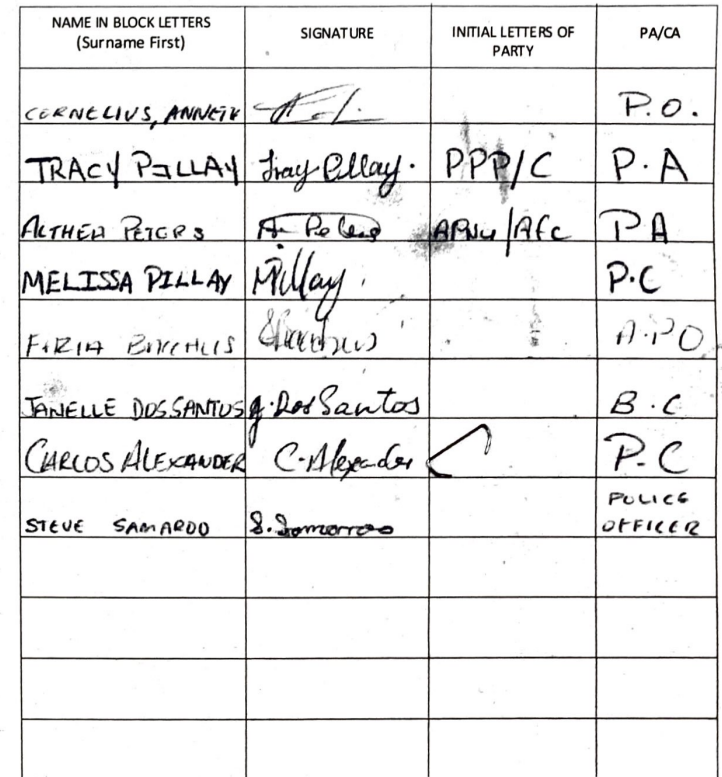 NAME IN BLOCK LETTERS
(Surname First)
SIGNATURE
INITIAL LETTERS OF
PARTY
PA/CA
CORNELIUS, P.O.
TRACY PILLAY Tracy Pillay. PPP/C P.A
ALTHEA PETERS A. Peters APNU/AFC PA
MELISSA PILLAY MPillay P.C
A.PO
JANELLE DOS SANTOS J. Dos Santos B.C
CARLOS ALEXANDER C. Alexander P.C
STEVE SAMAROO S. Samaroo POLICE
OFFICER